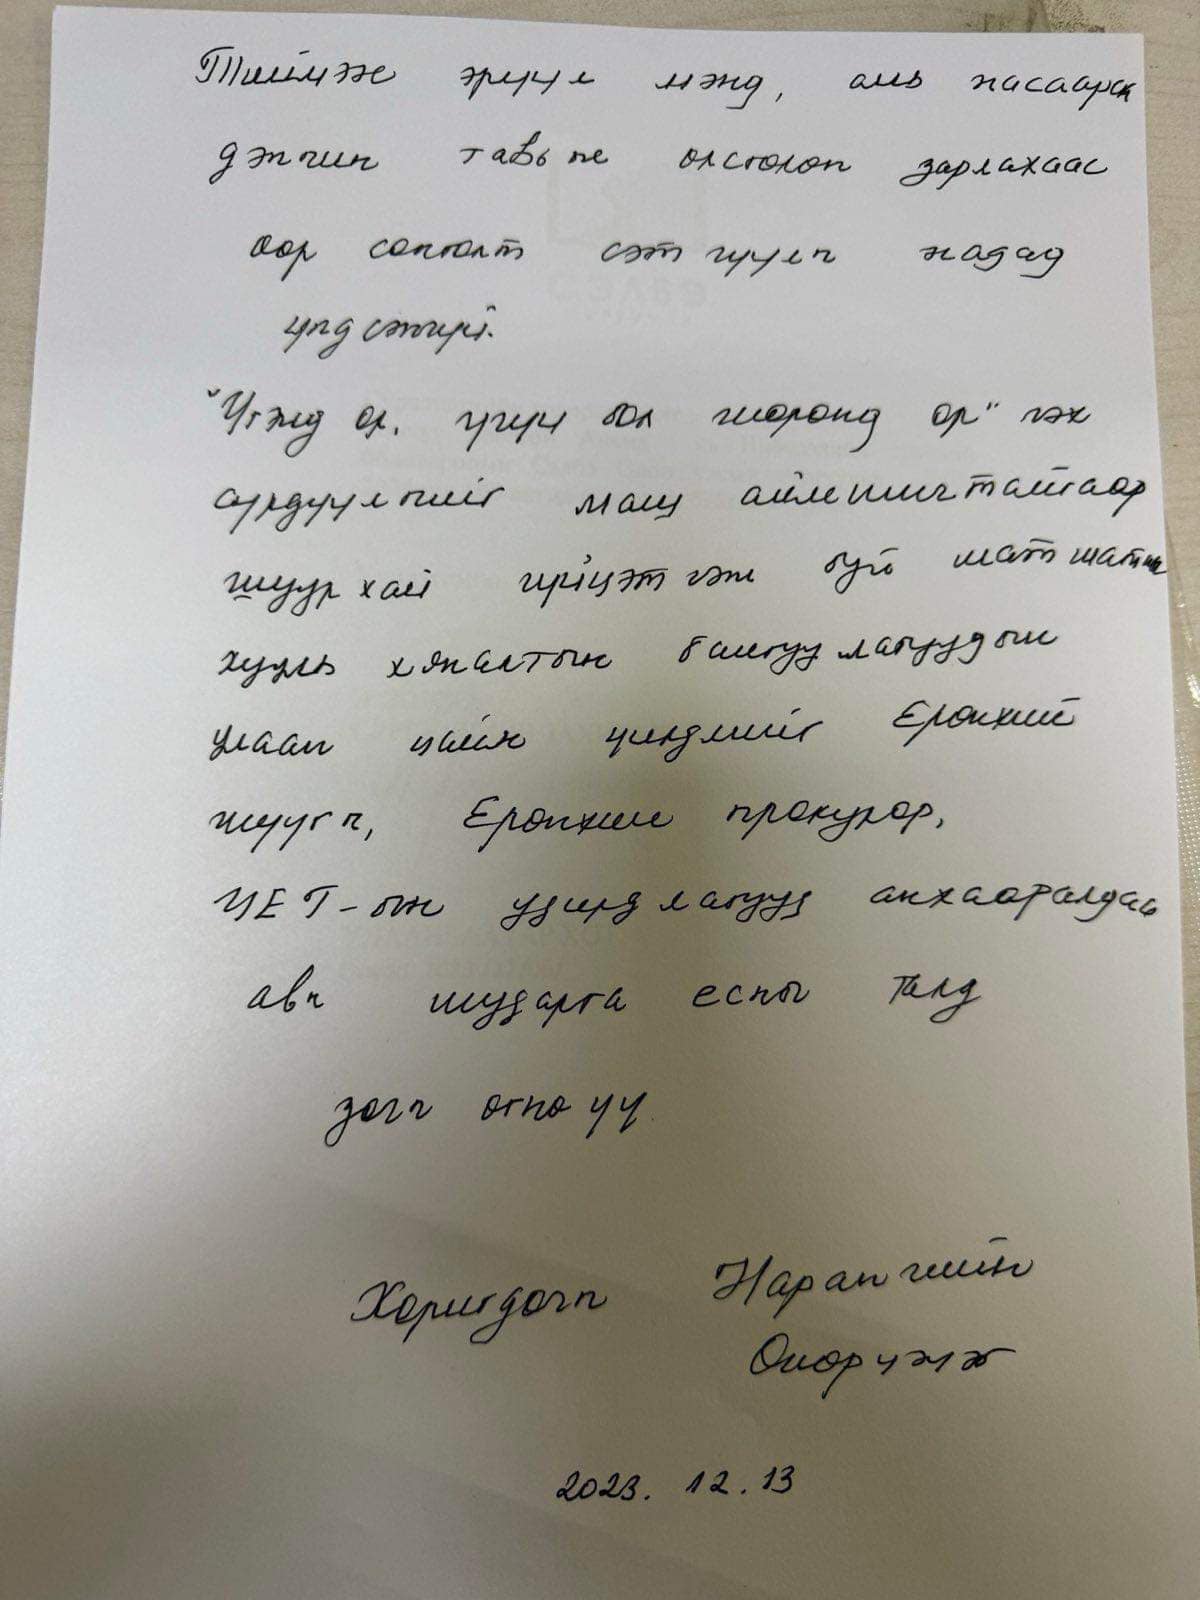 Тиймээс эрүүл мэнд, амь насаараа
дэнчин тавьж өлсгөлөн зарлахаас
өөр сонголт сэтгүүлч надад
үлдсэнгүй.
"Үгэнд ор, үгүй бол шоронд ор" гэх
сүрдүүлгийг маш аймшигтайгаар
шуурхай гүйцэтгэж буй мэт
хууль хяналтын байгууллагуудын
улаан цайм үйлдлийг Ерөнхий
шүүгч, Ерөнхий прокурор,
ЦЕГ-ын удирдлагууд анхааралдаа
авч шударга ёсны талд
зогсч өгнө үү.
Хоригдогч Нарангийн
Өнөрцэцэг
2023. 12. 13